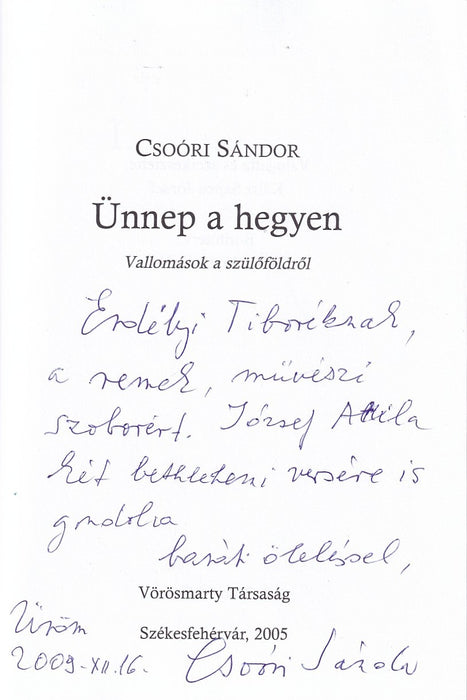 CSOÓRI SÁNDOR
Ünnep a hegyen
Vallomások a szülőföldről
Erdélyi Tiboréknak,
a remek, művészi
szoborért. József Attila
két bethlehemi versére is
gondolva
baráti öleléssel,
Vörösmarty Társaság
Üröm
Székesfehérvár, 2005
2009. XII. 16.
Csoóri Sándor